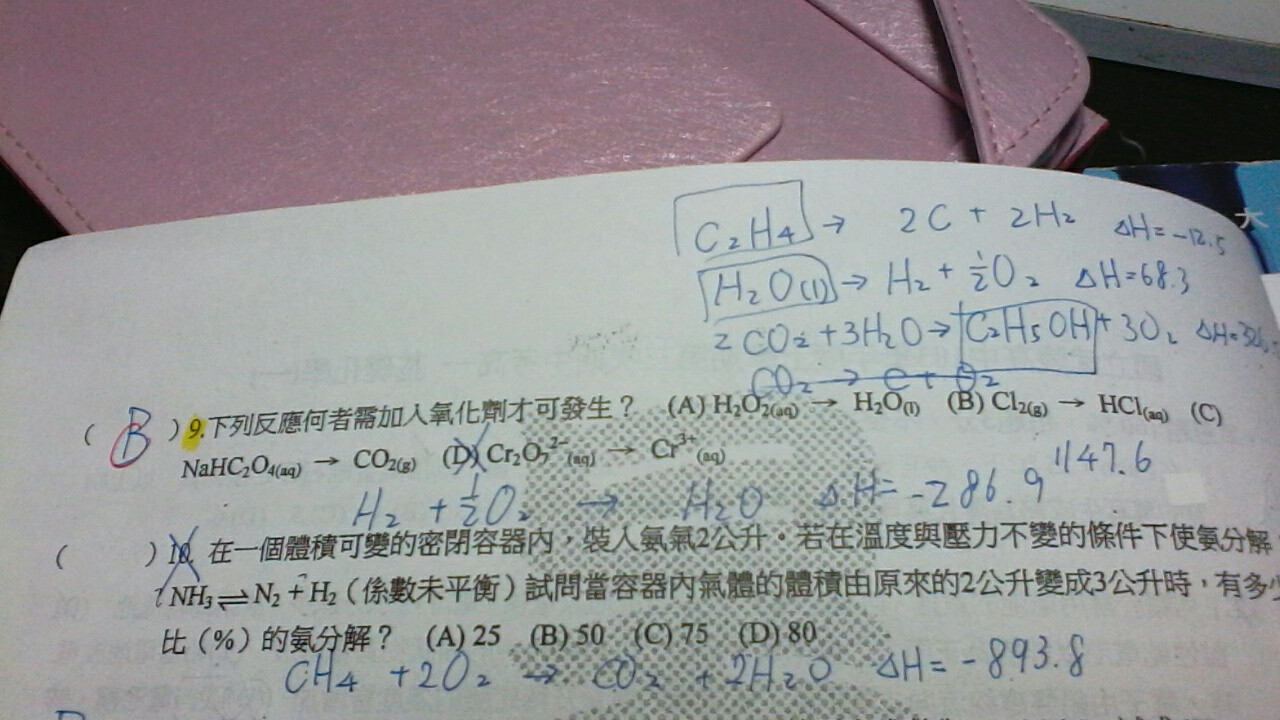 C₂H₄ → 2C + 2H₂ ΔH=-12.5
大
H₂O(l) → H₂ + ½O₂ ΔH=68.3
2CO₂+3H₂O→C₂H₅OH+3O₂ ΔH=
CO₂ → C + O₂
( B ) 9.下列反應何者需加入氧化劑才可發生? (A) H₂O₂(aq) → H₂O(l) (B) Cl₂(g) → HCl(aq) (C)
NaHC₂O₄(aq) → CO₂(g) (D) Cr₂O₇²⁻(aq) → Cr³⁺(aq)
1147.6
H₂ + ½O₂ → H₂O ΔH=-286.9
( ) 10. 在一個體積可變的密閉容器內,裝入氨氣2公升。若在溫度與壓力不變的條件下使氨分解
NH₃⇌N₂+H₂(係數未平衡)試問當容器內氣體的體積由原來的2公升變成3公升時,有多
比(%)的氨分解? (A) 25 (B) 50 (C) 75 (D) 80
CH₄ +2O₂ → CO₂ +2H₂O ΔH=-893.8